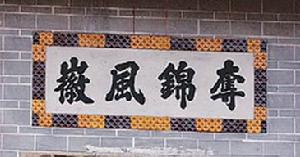 奪錦風徽